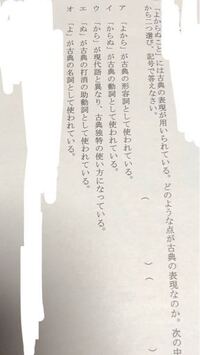 「よからぬこと」には古典の表現が用いられている。どのような点が古典の表現なのか。次の中
から二つ選び、記号で答えなさい。
（　　）（　　）
ア「よから」が古典の形容詞として使われている。
イ「からぬ」が古典の動詞として使われている。
ウ「から」が現代語と異なり、古典独特の使い方になっている。
エ「ぬ」が古典の打消の助動詞として使われている。
オ「よ」が古典の名詞として使われている。